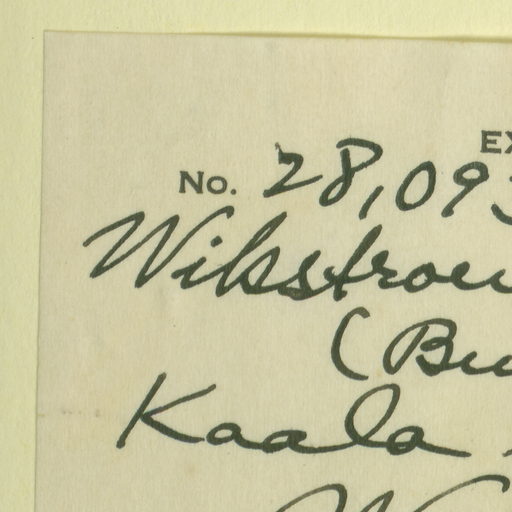 EX
No. 28,093
Wikstroe
(Bu
Kaala
W